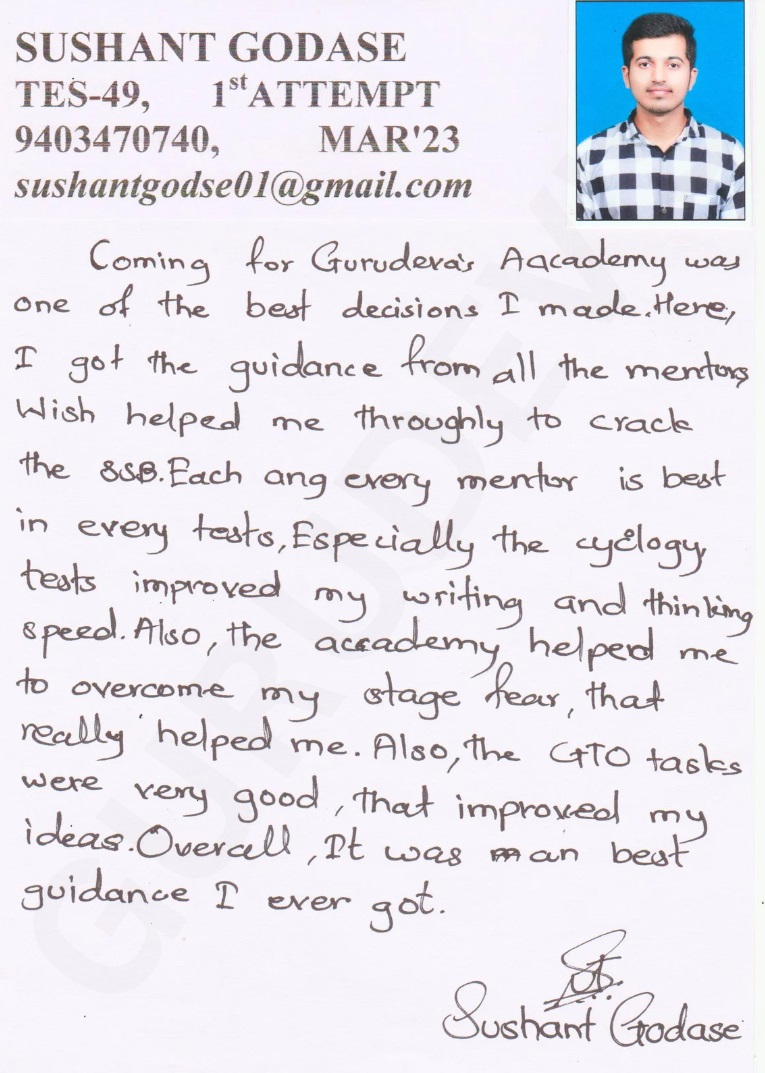 SUSHANT GODASE
TES-49, 1st ATTEMPT
9403470740, MAR'23
sushantgodse01@gmail.com
Coming for Gurudeva's Aacademy was
one of the best decisions I made. Here,
I got the guidance from all the mentors
Wish helped me throughly to crack
the SSB. Each ang every mentor is best
in every tests, Especially the cyclogy
tests improved my writing and thinking
speed. Also, the accademy helped me
to overcome my stage fear, that
really helped me. Also, the GTO tasks
were very good, that improved my
ideas. Overall, It was an best
guidance I ever got.
Sushant Godase
GURUDEV